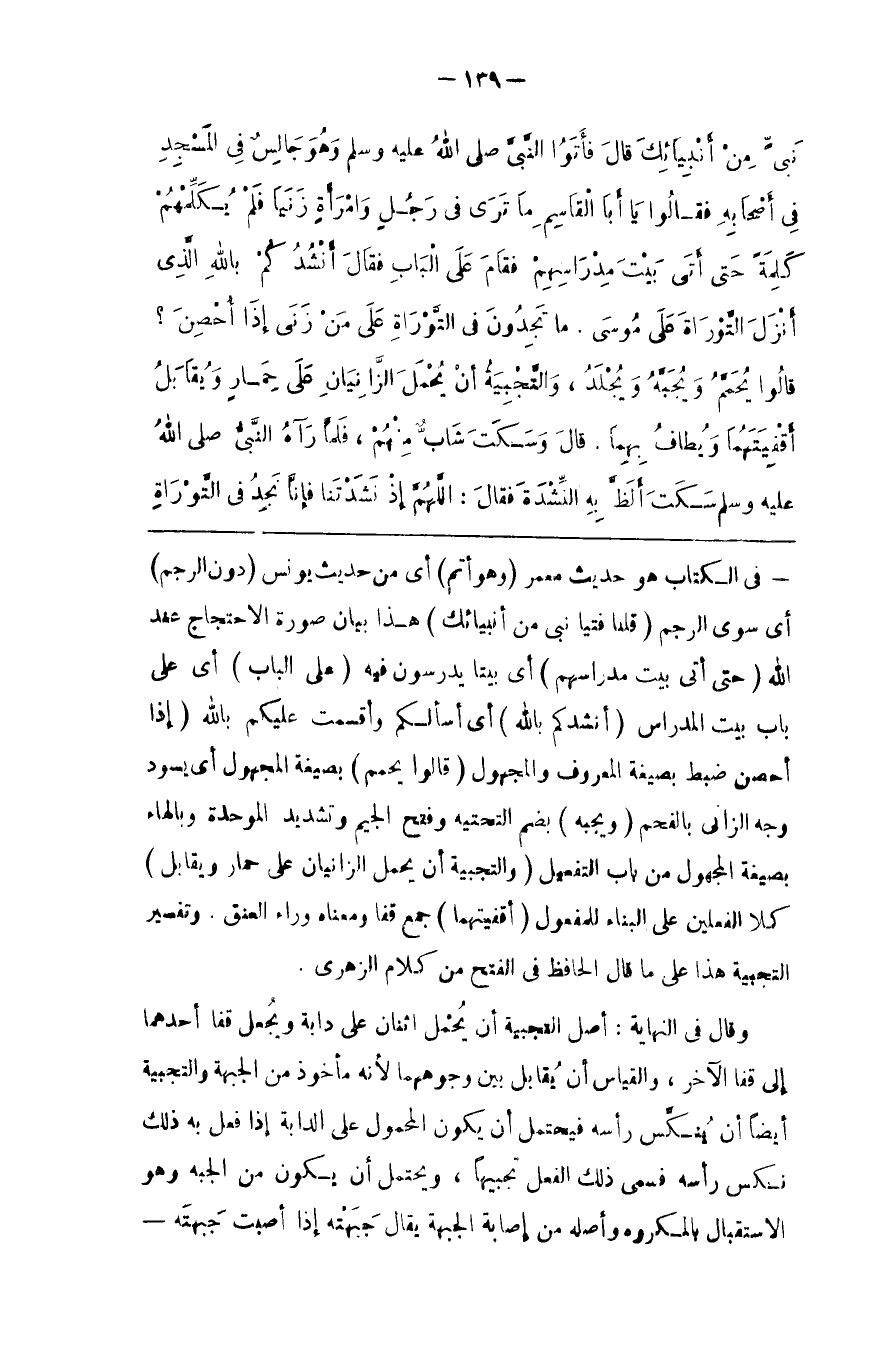 — ١٣٩ —
نَبِىٍّ مِنْ أَنْبِيَائِكَ قالَ فَأَتَوُا النَّبىَّ صلى اللهُ عليه وسلم وَهُوَ جَالِسٌ فِى الْمَسْجِدِ
فِى أَصْحَابِهِ فقالُوا يَا أَبَا الْقَاسِمِ مَا تَرَى فى رَجُلٍ وَامْرَأَةٍ زَنَيَا فَلَمْ يُكَلِّمْهُمْ
كَلِمَةً حَتى أَتَى بَيْتَ مِدْرَاسِهِمْ فقَامَ عَلَى الْبَابِ فقَالَ أَنْشُدُكُمْ بالله الَّذِى
أَنْزَلَ التَّوْرَاةَ عَلَى مُوسَى . ما تَجِدُونَ فى التَّوْرَاةِ عَلَى مَنْ زَنَى إذَا أُحْصِنَ ؟
قالُوا يُحَمَّمُ وَيُجَبَّهُ وَيُجْلَدُ ، وَالتَّجْبِيَةُ أنْ يُحْمَلَ الزَّانِيَانِ عَلَى حِمَارٍ وَيُقَابَلُ
أَقْفِيَتَهُمَا وَيُطافُ بِهِمَا . قالَ وَسَكَتَ شَابٌّ مِنْهُمْ ، فَلَمَّا رَآهُ النَّبىُّ صلى اللهُ
عليه وسلم سَكَتَ أَلَظَّ بِهِ النِّشْدَةَ فقالَ : اللَّهُمَّ إذْ نَشَدْتَنا فإنَّا نَجِدُ فى التَّوْرَاةِ
— فى الكتاب هو حديث معمر (وهو أتم) أى من حديث يونس (دون الرجم)
أى سوى الرجم ( قلنا فتيا نبى من أنبيائك ) هذا بيان صورة الاحتجاج عند
الله ( حتى أتى بيت مدراسهم ) أى بيتا يدرسون فيه ( على الباب ) أى على
باب بيت المدراس ( أنشدكم بالله ) أى أسألكم وأقسمت عليكم بالله ( إذا
أحصن ضبط بصيغة المعروف والمجهول ( قالوا يحمم ) بصيغة المجهول أى يسود
وجه الزانى بالفحم ( ويجبه ) بضم التحتيه وفتح الجيم وتشديد الموحدة وبالهاء
بصيغة المجهول من باب التفعيل ( والتجبية أن يحمل الزانيان على حمار ويقابل )
كلا الفعلين على البناء للمفعول ( أقفيتهما ) جمع قفا ومعناه وراء العنق . وتفسير
التجبية هذا على ما قال الحافظ فى الفتح من كلام الزهرى .
وقال فى النهاية : أصل التجبية أن يُحْمل اثنان على دابة ويُجعل قفا أحدهما
إلى قفا الآخر ، والقياس أن يُقابل بين وجوههما لأنه مأخوذ من الجبهة والتجبية
أيضاً أن يُنكَّس رأسه فيحتمل أن يكون المحمول على الدابة إذا فعل به ذلك
نكس رأسه فسمى ذلك الفعل تجبيهاً ، ويحتمل أن يكون من الجبه وهو
الاستقبال بالمكروه وأصله من إصابة الجبهة يقال جَبَهْته إذا أصبت جَبهَتَه —